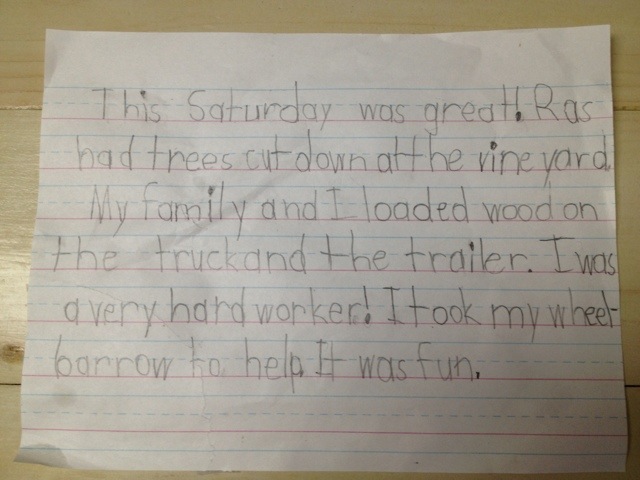 This Saturday was great! Ras
had trees cut down at the vineyard.
My family and I loaded wood on
the truck and the trailer. I was
a very hard worker! I took my wheel-
barrow to help. It was fun.